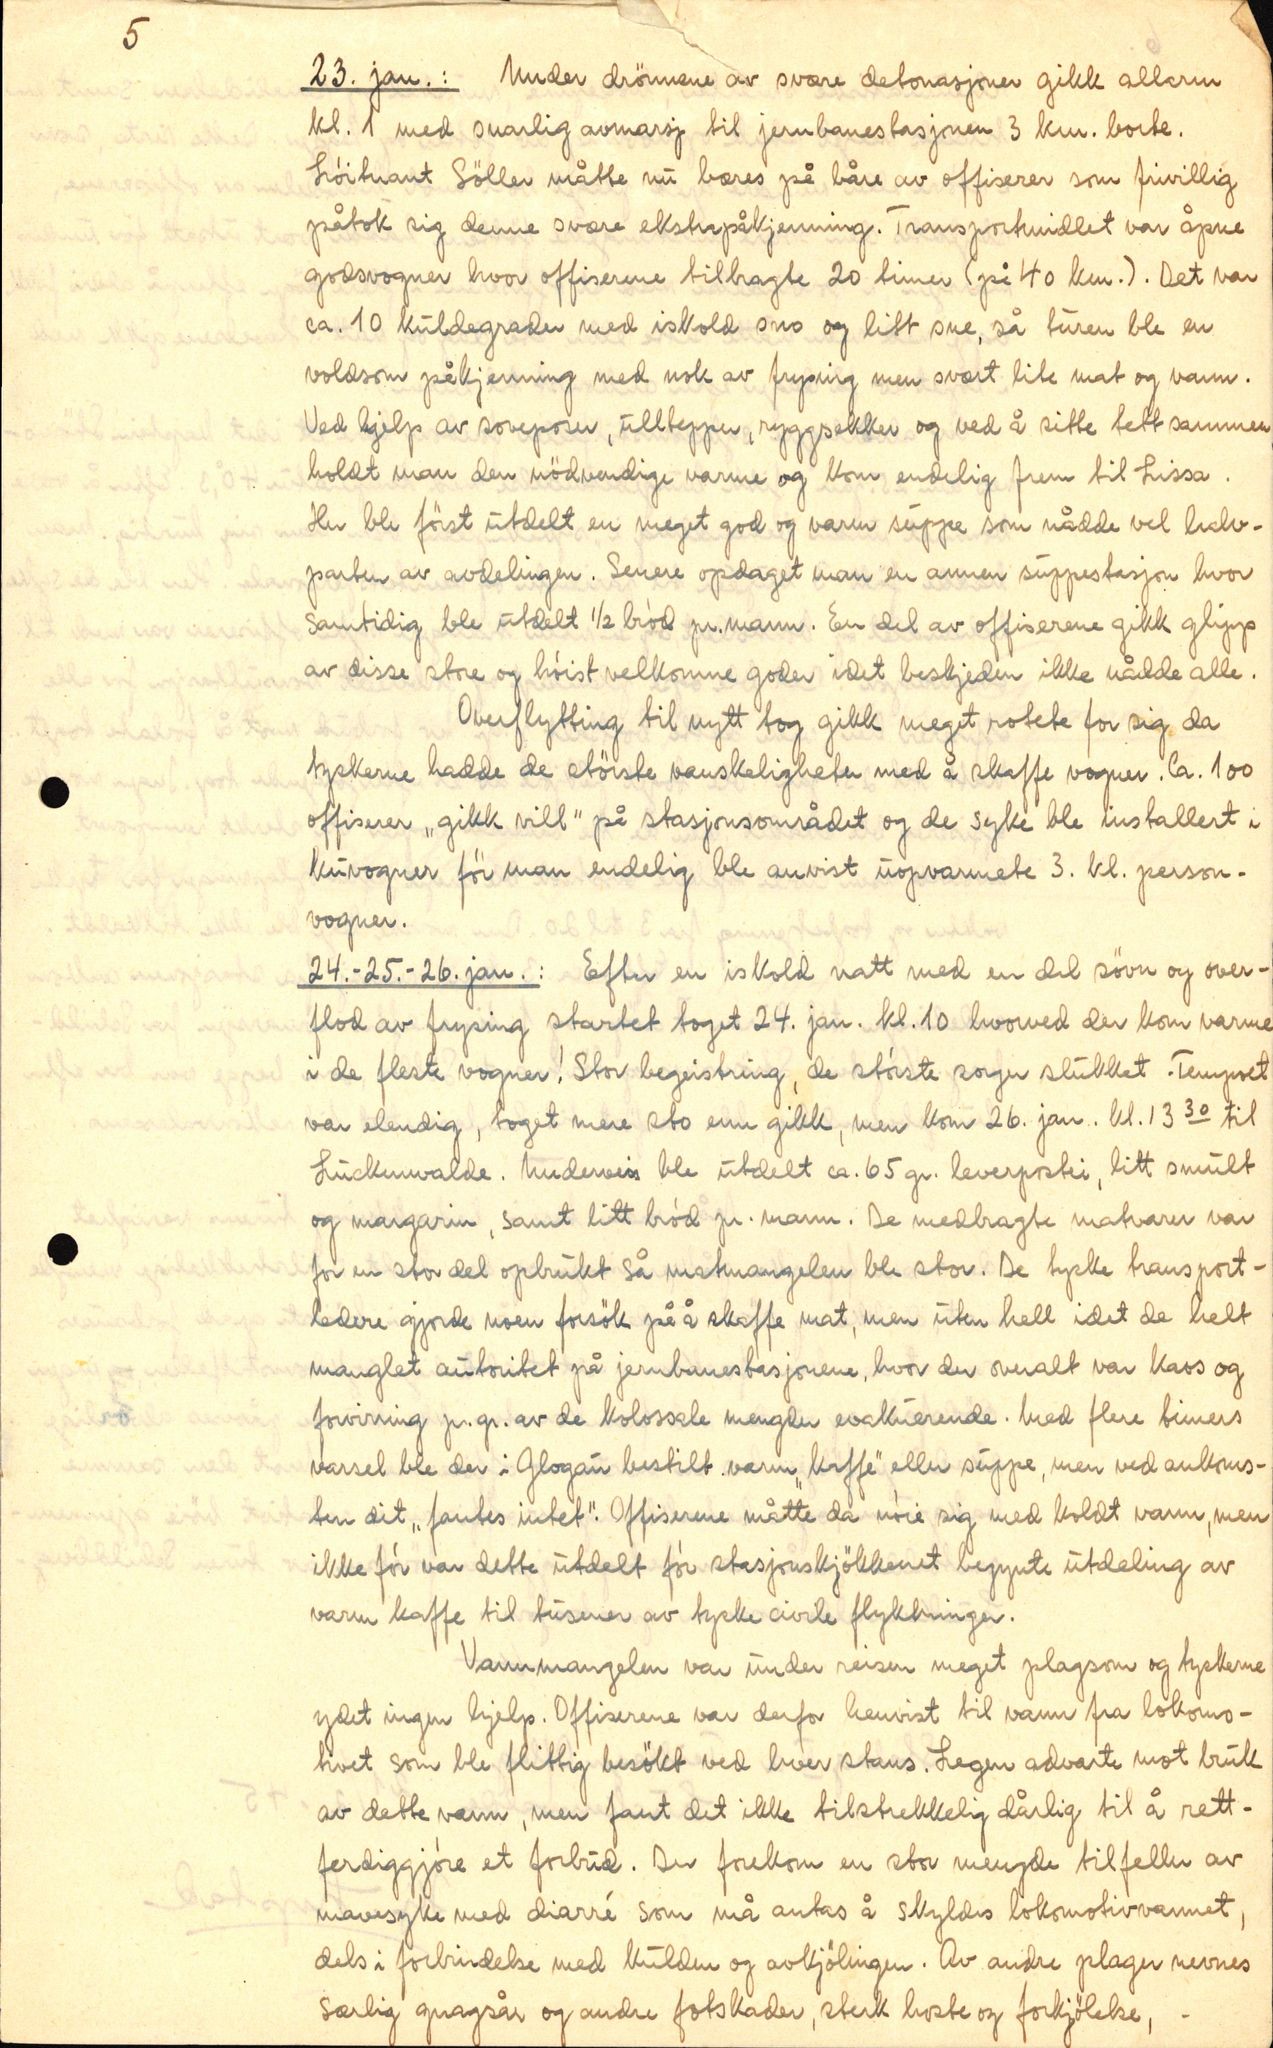 5
23. jan.: Under drönnene av svære detonasjoner gikk allarm
kl. 1 med snarlig avmarsj til jernbanestasjonen 3 km. borte.
Löitnant Söller måtte nu bæres på båre av offiserer som frivillig
påtok sig denne svære ekstrapåkjenning. Transportmidlet var åpne
godsvogner hvor offiserene tilbragte 20 timer (på 40 km.). Det var
ca. 10 kuldegrader med iskold sno og litt sne, så turen ble en
voldsom påkjenning med nok av frysing men svært lite mat og vann.
Ved hjelp av soveposer, ulltepper, ryggsekker og ved å sitte tett sammen
holdt man den nödvendige varme og kom endelig frem til Lissa.
Her ble först utdelt en meget god og varm suppe som nådde vel halv-
parten av avdelingen. Senere opdaget man en annen suppestasjon hvor
samtidig ble utdelt 1/2 bröd pr. mann. En del av offiserene gikk glipp
av disse store og höist velkomne goder idet beskjeden ikke nådde alle.
Overflytting til nytt tog gikk meget rotete for sig da
tyskerne hadde de störste vanskeligheter med å skaffe vogner. Ca. 100
offiserer „gikk vill" på stasjonsområdet og de syke ble installert i
kuvogner för man endelig ble anvist uopvarmete 3. kl. person-
vogner.
24.-25.-26. jan.: Efter en iskold natt med en del sövn og over-
flod av frysing startet toget 24. jan. kl. 10 hvorved der kom varme
i de fleste vogner! Stor begeistring, de störste sorger slukket. Tempoet
var elendig, toget mere sto enn gikk, men kom 26. jan. kl. 13 30 til
Luckenwalde. Underveis ble utdelt ca. 65 gr. leverpostei, litt smult
og margarin, samt litt bröd pr. mann. De medbragte matvarer var
for en stor del opbrukt så matmangelen ble stor. De tyske transport-
ledere gjorde noen forsök på å skaffe mat, men uten hell idet de helt
manglet autoritet på jernbanestasjonene, hvor der overalt var kaos og
forvirring p.gr. av de kolossale mengder evakuerende. Med flere timers
varsel ble der i Glogau bestilt varm „kaffe" eller suppe, men ved ankoms-
ten dit „fantes intet". Offiserene måtte da nöie sig med koldt vann, men
ikke för var dette utdelt för stasjonskjökkenet begynte utdeling av
varm kaffe til tusener av tyske civile flyktninger.
Vannmangelen var under reisen meget plagsom og tyskerne
ydet ingen hjelp. Offiserene var derfor henvist til vann fra lokomo-
tivet som ble flittig besökt ved hver stans. Legen advarte mot bruk
av dette vann, men fant det ikke tilstrekkelig dårlig til å rett-
ferdiggjöre et forbud. Der forekom en stor mengde tilfeller av
mavesyke med diarré som må antas å skyldes lokomotivvannet,
dels i forbindelse med kulden og avkjölingen. Av andre plager nevnes
særlig gnagsår og andre fotskader, sterk hoste og forkjölelse, -